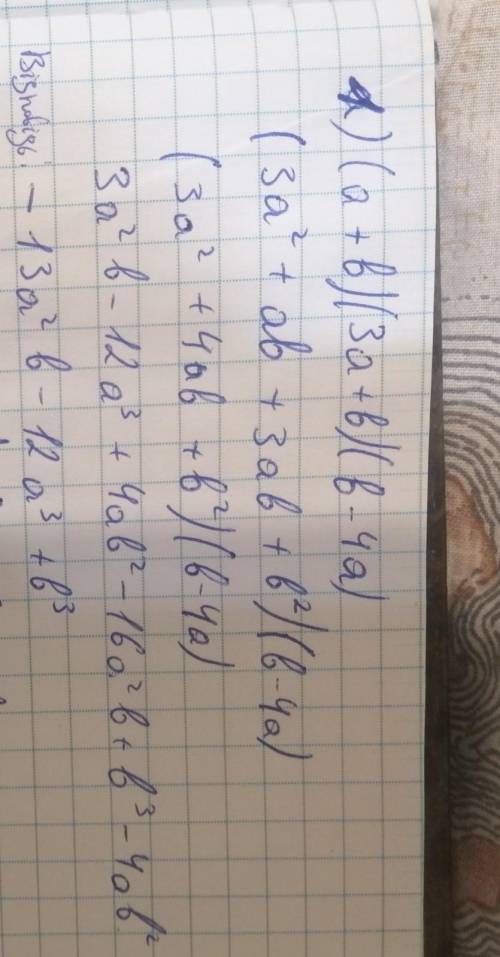 д) (a + b)(3a + b)(b - 4a)
(3a² + ab + 3ab + b²)(b - 4a)
(3a² + 4ab + b²)(b - 4a)
3a²b - 12a³ + 4ab² - 16a²b + b³ - 4ab²
Відповідь: - 13a²b - 12a³ + b³